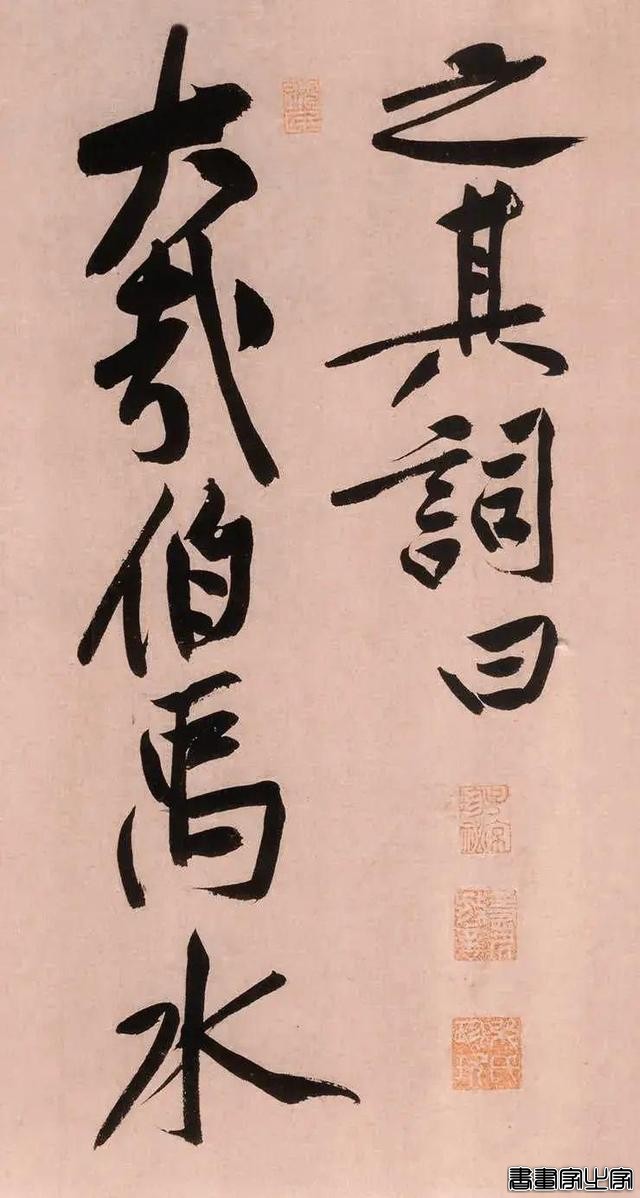 之其詞曰
大哉伯禹水
書畫家之家